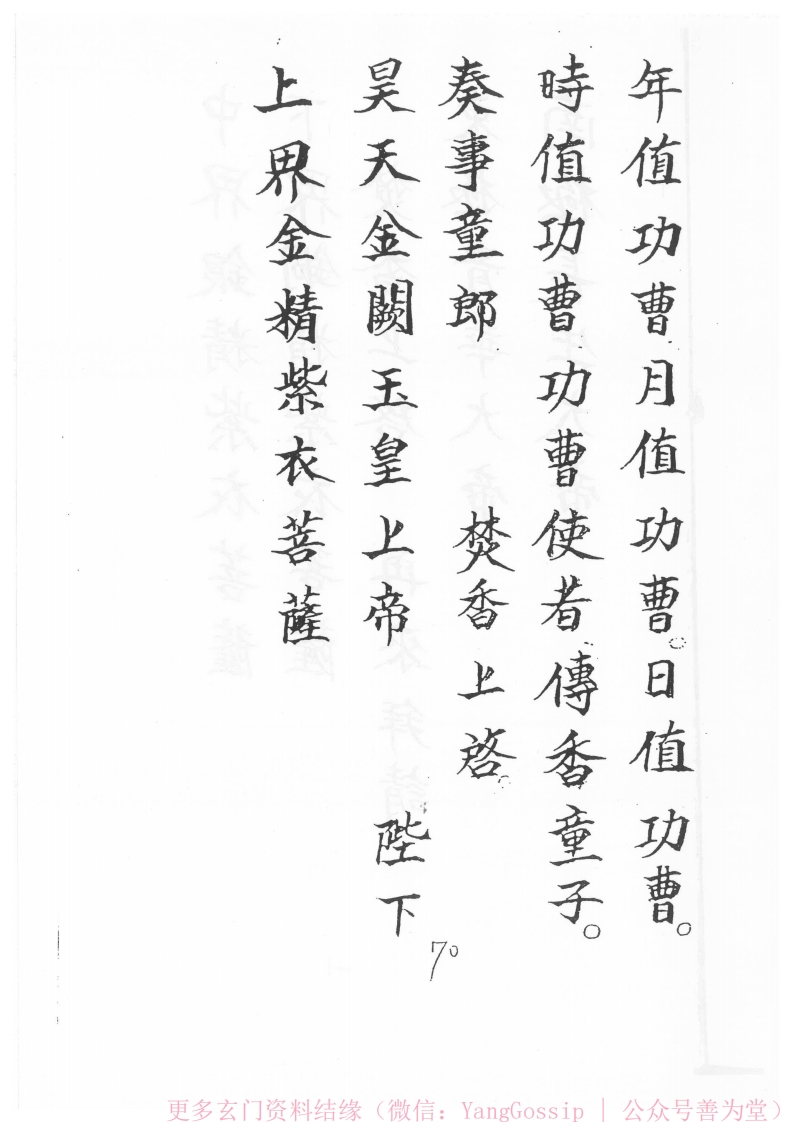 年值功曹月值功曹。日值功曹。
時值功曹功曹使者傳香童子。
奏事童郎 焚香上啓。
昊天金闕玉皇上帝 陛下
上界金精紫衣菩薩
70
更多玄门资料结缘（微信：YangGossip | 公众号善为堂）